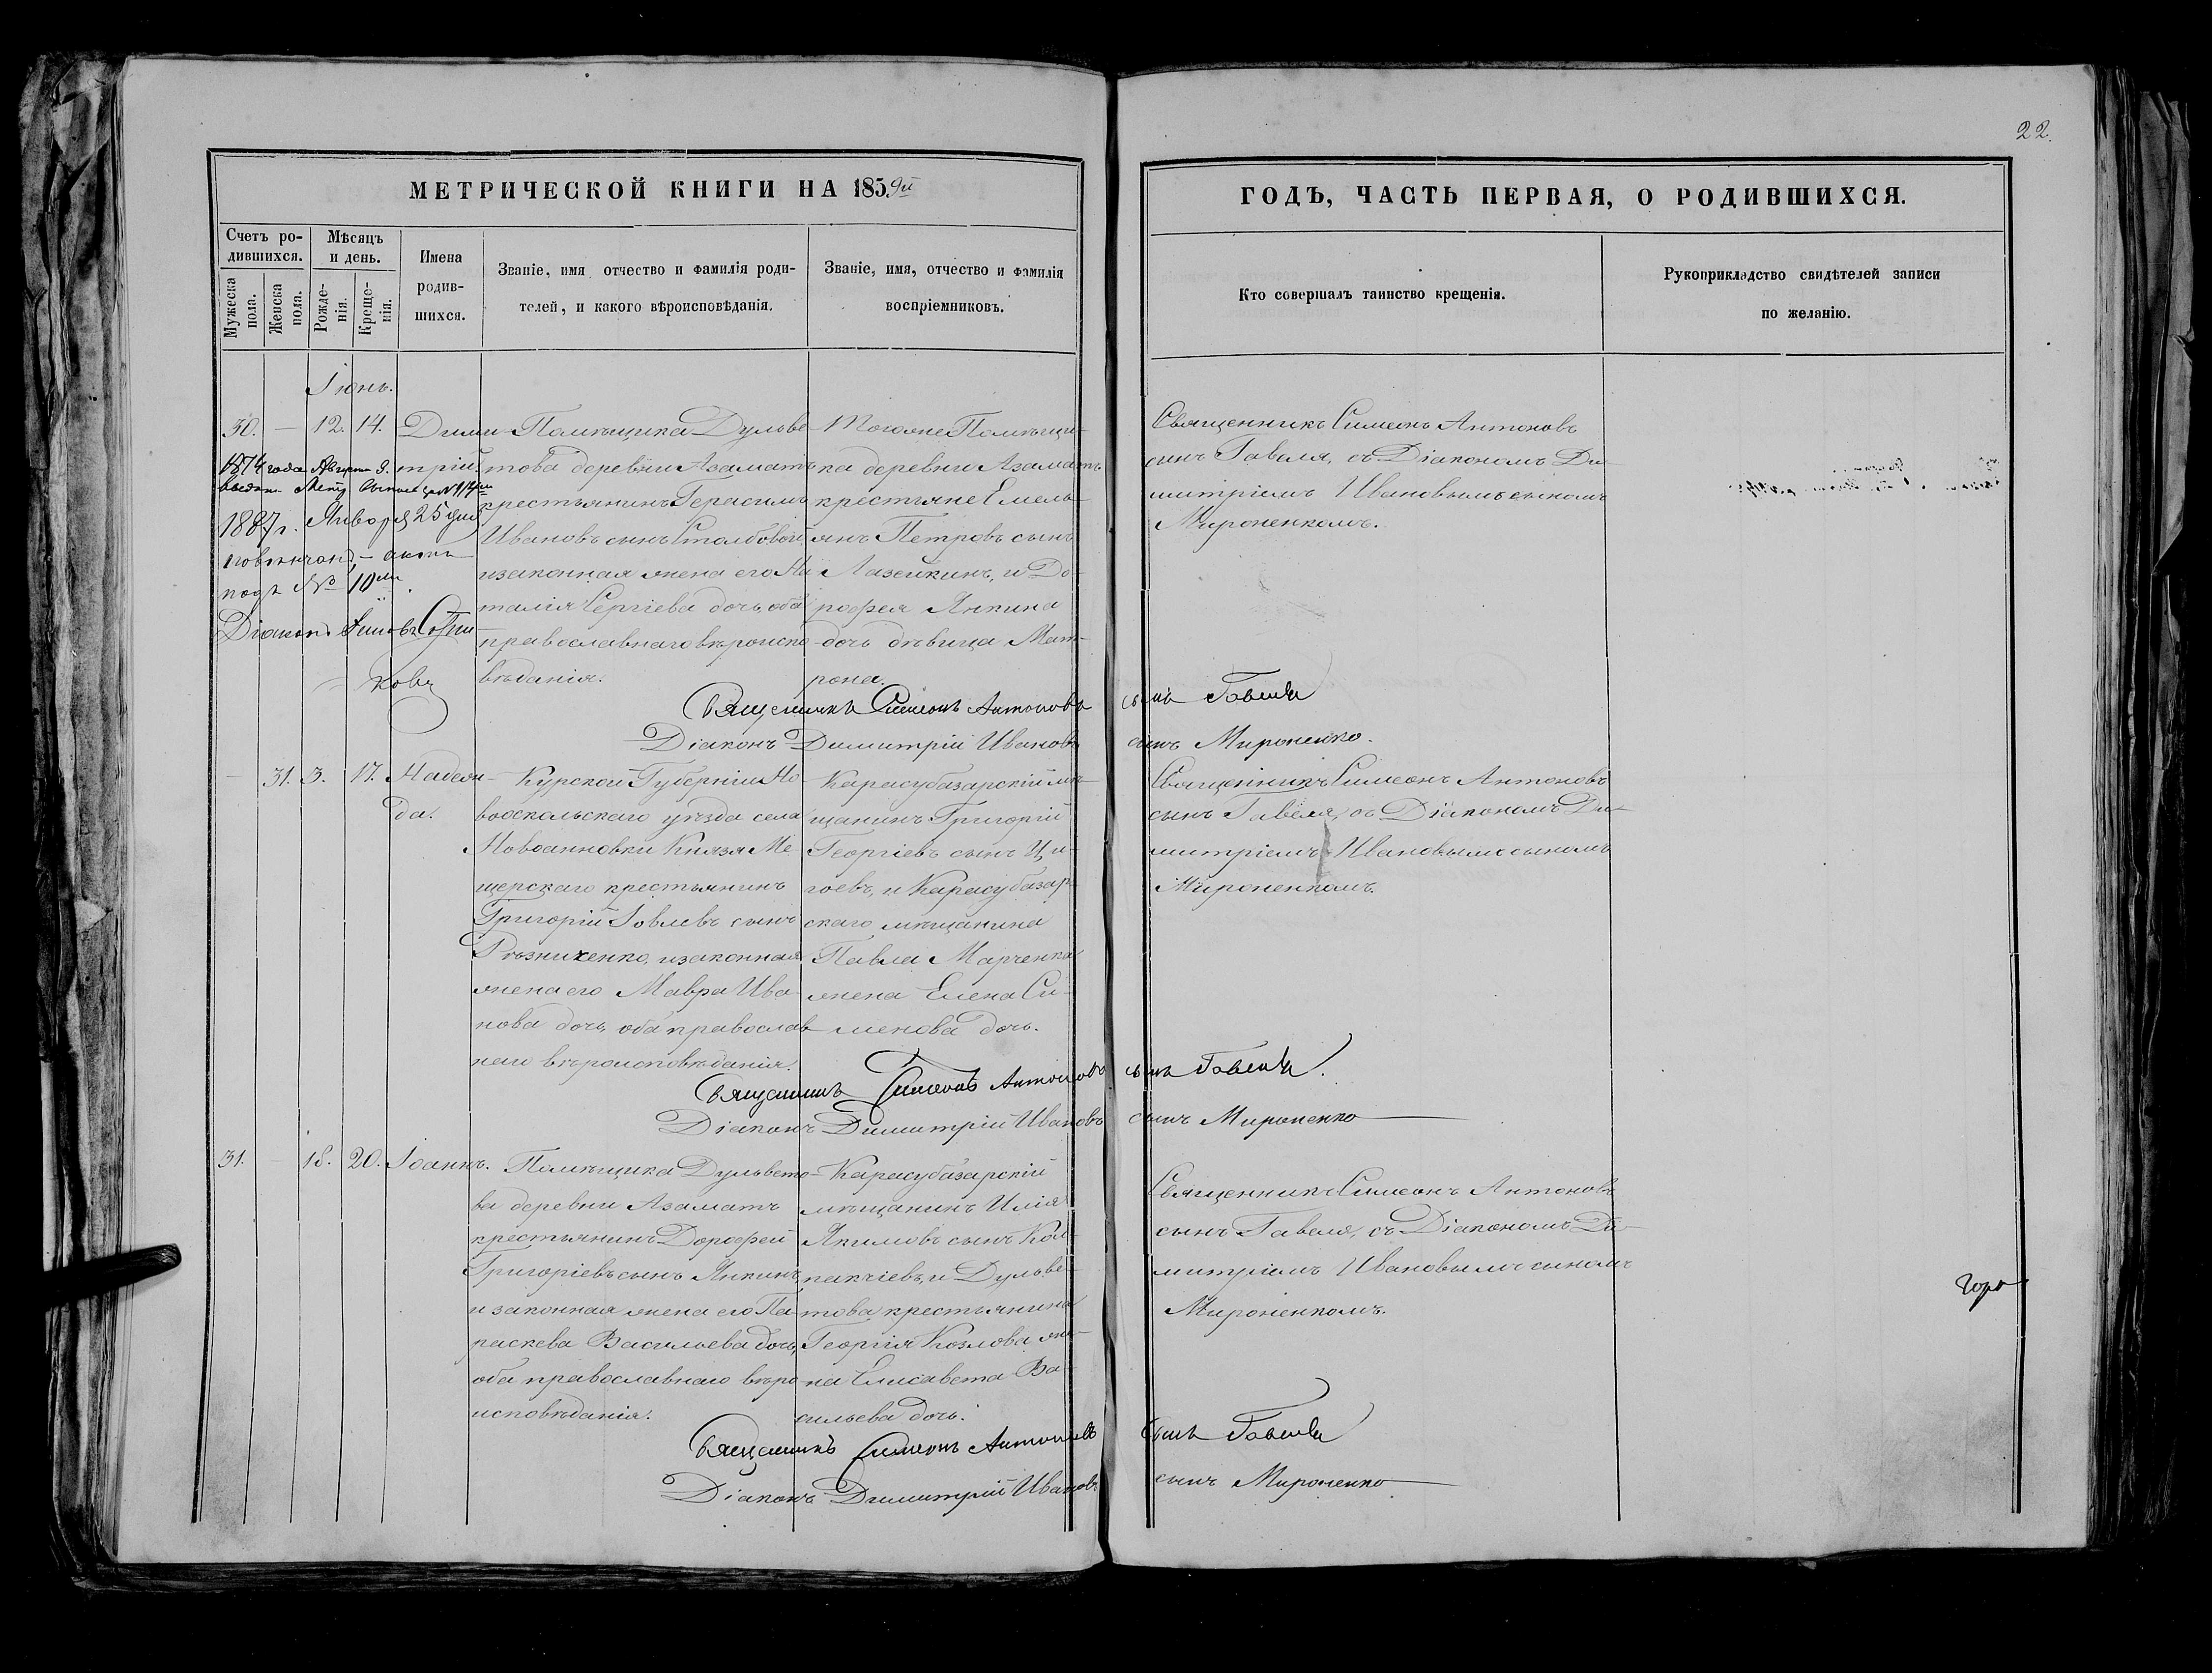 22.
МЕТРИЧЕСКОЙ КНИГИ НА 1859й
ГОДЪ, ЧАСТЬ ПЕРВАЯ, О РОДИВШИХСЯ.
Счетъ родившихся.
Мужеска пола.
Женска пола.
Мѣсяцъ и день.
Рожденія.
Крещенія.
Имена
родив-
шихся.
Званіе, имя отчество и фамилія роди-
телей, и какого вѣроисповѣданія.
Званіе, имя, отчество и фамилія
воспріемниковъ.
Кто совершалъ таинство крещенія.
Рукоприкладство свидѣтелей записи
по желанію.
Іюнь.
30. — 12. 14. Дими-
трій.
1874 года Августа 9.
1887 г. Января 25 дня
повѣнчанъ, — актъ
подъ № 10мъ.
Діаконъ
ковъ
Помѣщика Дульве-
това деревни Азаматъ
крестьянинъ Герасимъ
Ивановъ сынъ Столбовой,
и законная жена его На-
талія Сергіева дочь, оба
православнаго вѣроиспо-
вѣданія.
Того же Помѣщи-
ка деревни Азаматъ
крестьяне Емель-
янъ Петровъ сынъ
Лазейкинъ, и До-
рофея Янкина
дочь дѣвица Мат-
рона.
Священникъ Симеонъ Антоновъ
сынъ Гавеля, съ Діакономъ Ди-
митріемъ Ивановымъ сыномъ
Мироненкомъ.
Священникъ Симеонъ Антоновъ сынъ Гавеля
Діаконъ Димитрій Ивановъ сынъ Мироненко.
— 31. 3. 17. Надеж-
да.
Курской Губерніи Но-
вооскольскаго уѣзда села
Новоаиновки Князя Ме-
щерскаго крестьянинъ
Григорій Іовлевъ сынъ
Рѣзниченко, и законная
жена его Мавра Ива-
нова дочь, оба православ-
наго вѣроисповѣданія.
Карасубазарскій мѣ-
щанинъ Григорій
Георгіевъ сынъ Ци-
гоевъ, и Карасубазар-
скаго мѣщанина
Павла Марченка
жена Елена Си-
менова дочь.
Священникъ Симеонъ Антоновъ
сынъ Гавеля, съ Діакономъ Ди-
митріемъ Ивановымъ сыномъ
Мироненкомъ.
Священникъ Симеонъ Антоновъ сынъ Гавеля.
Діаконъ Димитрій Ивановъ сынъ Мироненко
31. — 18. 20. Іоаннъ.
Помѣщика Дульвето-
ва деревни Азаматъ
крестьянинъ Дорофей
Григоріевъ сынъ Янкинъ,
и законная жена его Па-
раскева Васильева дочь,
оба православнаго вѣро-
исповѣданія.
Карасубазарскій
мѣщанинъ Илія
Якимовъ сынъ Кол-
пакчіевъ, и Дульве-
това крестьянина
Георгія Козлова же-
на Елисавета Ва-
сильева дочь.
Священникъ Симеонъ Антоновъ
сынъ Гавеля, съ Діакономъ Ди-
митріемъ Ивановымъ сыномъ
Мироненкомъ.
Священникъ Симеонъ Антоновъ сынъ Гавеля
Діаконъ Димитрій Ивановъ сынъ Мироненко